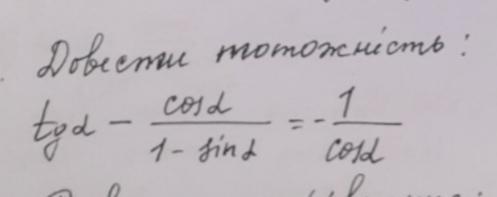 Довести тотожність:
tgα - cosα / (1 - sinα) = - 1 / cosα